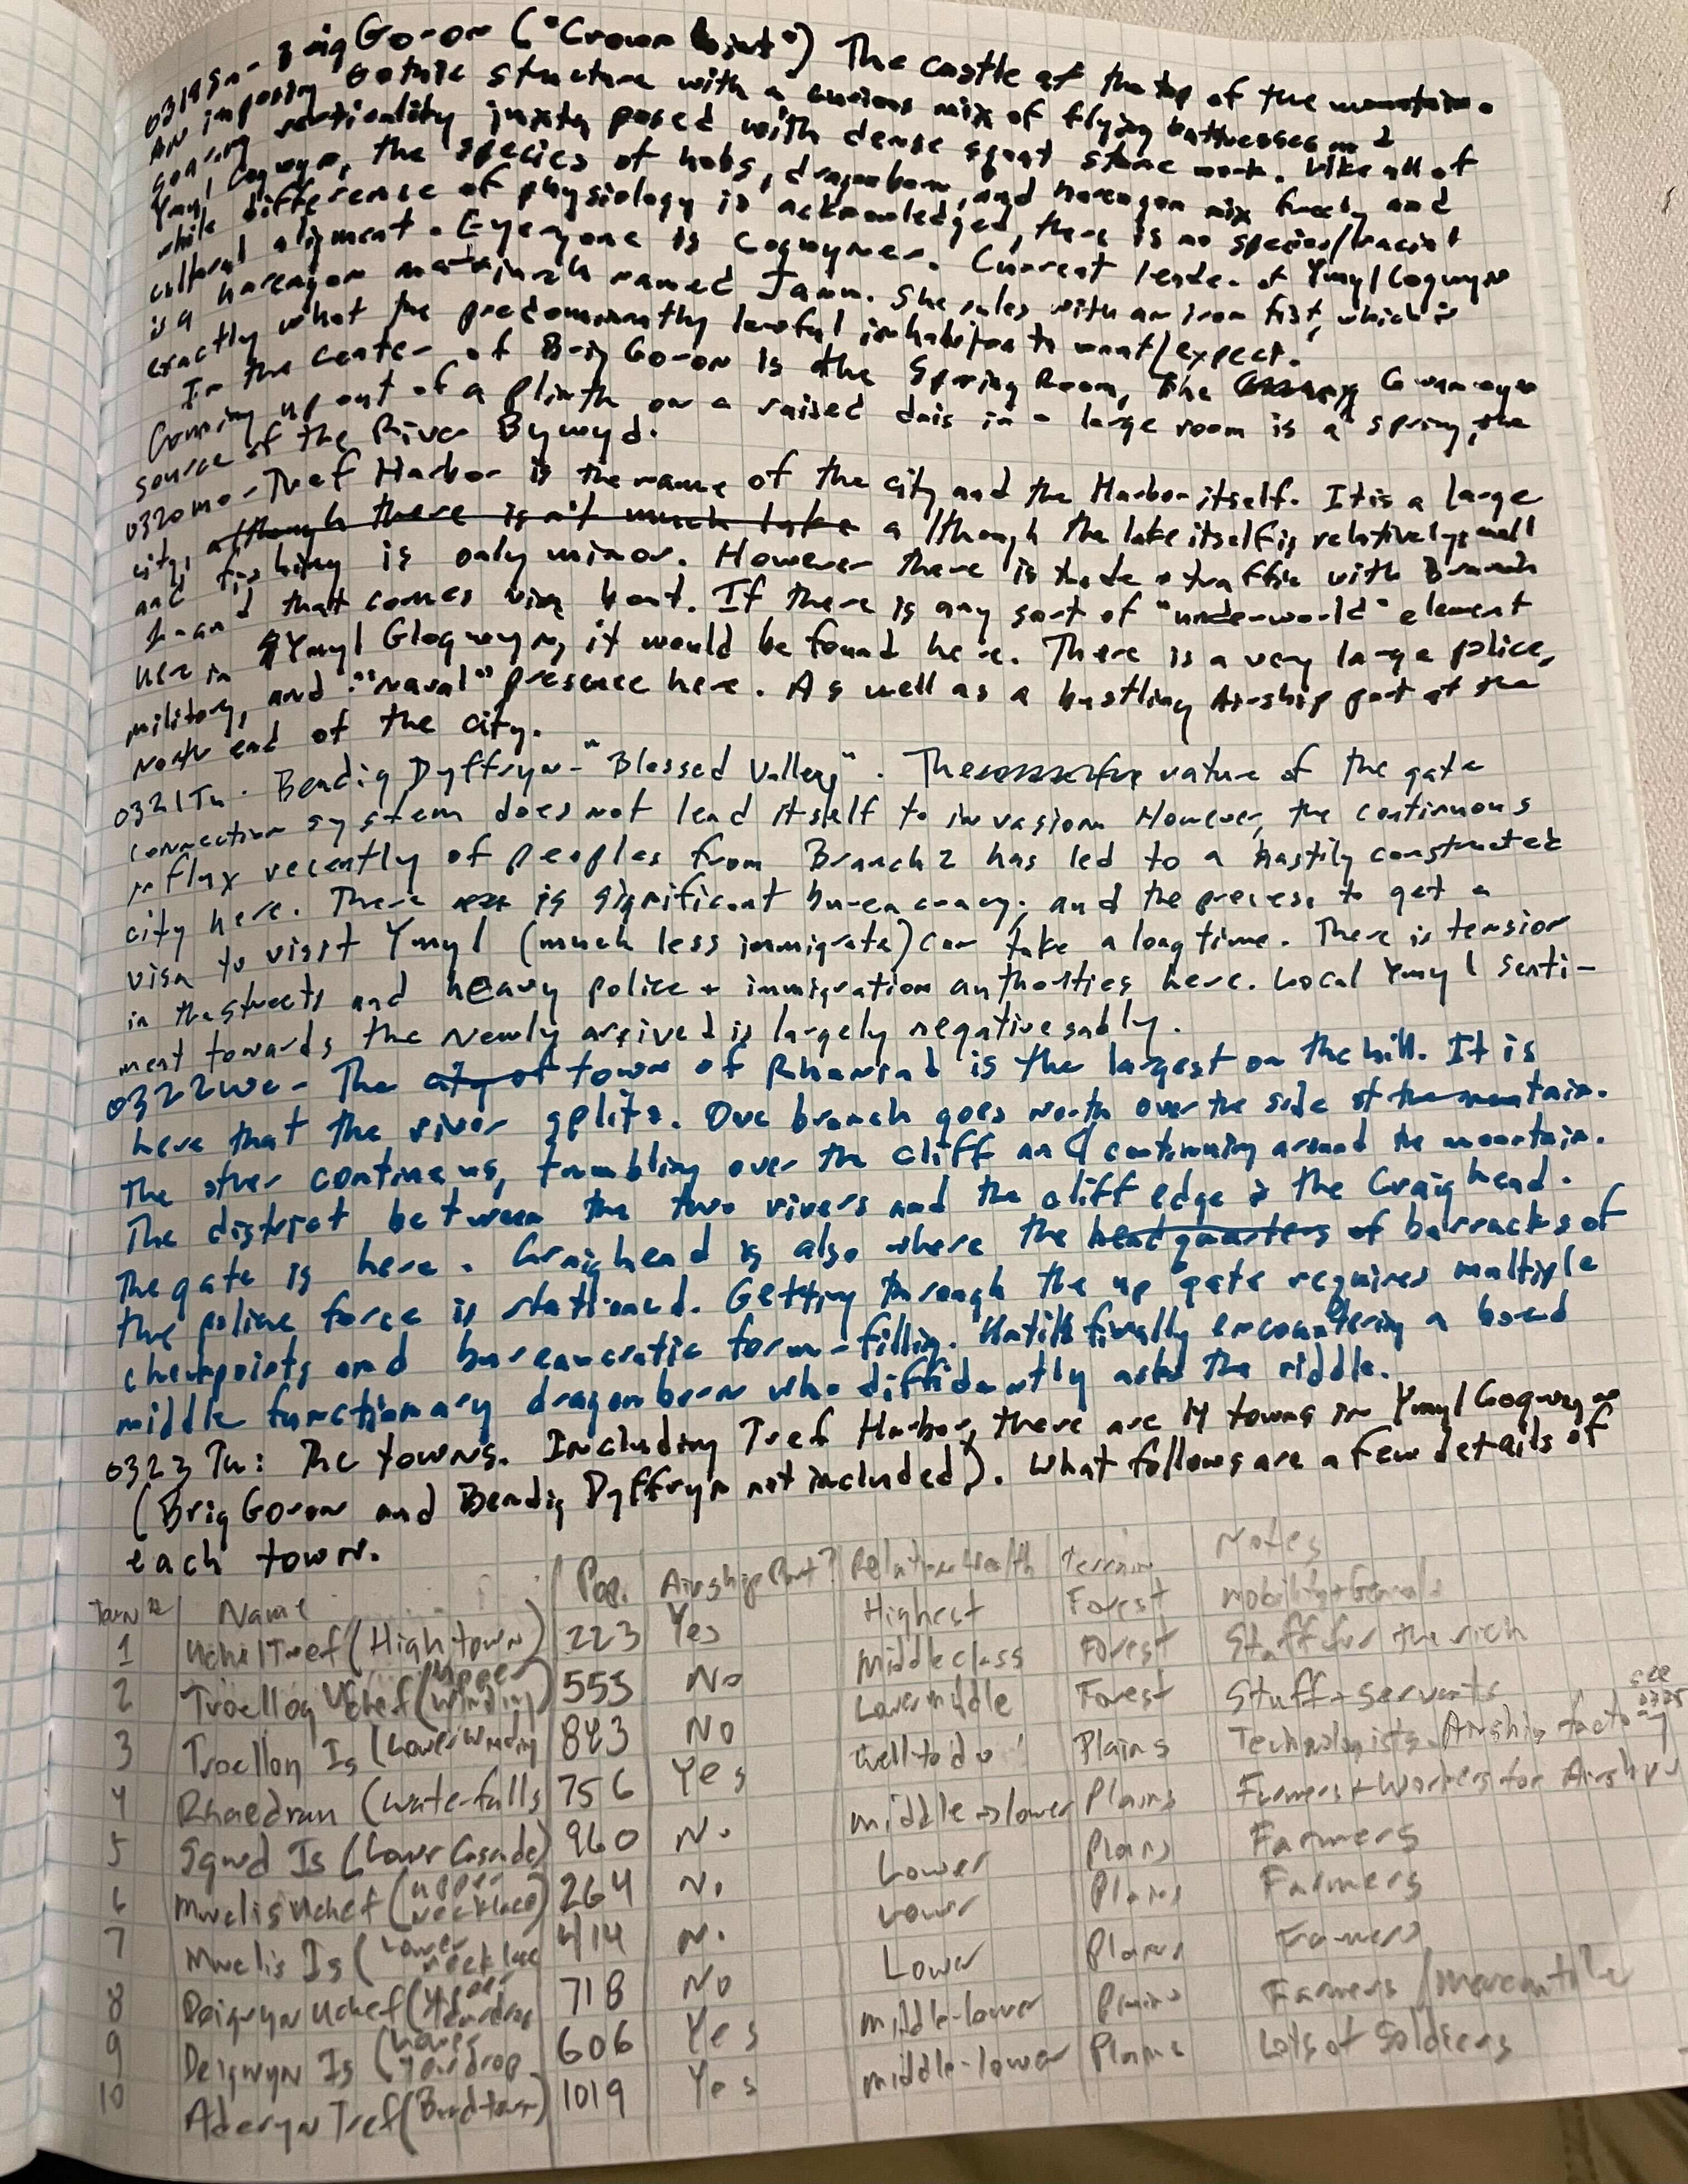 0319Su- Brig Goron ("Crown Point") The castle at the top of the mountain.
An imposing Gothic structure with a curious mix of flying buttresses and
soaring verticality juxtaposed with dense squat stone work. Like all of
Ymyl Gogwyn, the species of hobs, dragonborn, and harengon mix freely and
while difference of physiology is acknowledged, there is no species/racial
cultural alignment. Everyone is Gogwyner. Current leader of Ymyl Gogwyn
is a harengon named Jann. She rules with an iron fist, which is
exactly what the predominantly lawful inhabitants want/expect.
In the center of Brig Goron is the Spring Room, The
Coming up out of a plinth on a raised dais in a large room is a spring, the
source of the River Bywyd.
0320Mo- Tref Harbor is the name of the city and the Harbor itself. It is a large
city, although there isn't much lake although the lake itself is relatively small
and fishing is only minor. However there is trade + traffic with Branch
that comes via boat. If there is any sort of "underworld" element
here in Ymyl Glogwyn, it would be found here. There is a very large police,
military, and "naval" presence here. As well as a bustling Airship port at the
North end of the city.
0321Tu- Bendig Dyffryn- "Blessed Valley". The nature of the gate
connection system does not lend itself to invasion. However, the continuous
influx recently of peoples from Branch 2 has led to a hastily constructed
city here. There is significant bureaucracy; and the process to get a
visa to visit Ymyl (much less immigrate) can take a long time. There is tension
in the streets and heavy police + immigration authorities here. Local Ymyl senti-
ment towards the newly arrived is largely negative sadly.
0322We- The city of town of Rhaeadr is the largest on the hill. It is
here that the river splits. One branch goes North over the side of the mountain.
The other continues, tumbling over the cliff and continuing around the mountain.
The district between the two rivers and the cliff edge is the Craighead.
The gate is here. Craighead is also where the headquarters of barracks of
the police force is stationed. Getting through the up gate requires multiple
checkpoints and bureaucratic form-filling. Until finally encountering a bored
middle functionary dragonborn who diffidently asks the riddle.
0323Th: The towns. Including Tref Harbor, there are 14 towns in Ymyl Gogwyn
(Brig Goron and Bendig Dyffryn not included). What follows are a few details of
each town.
Town # Name Pop. Airship Port? Relative Wealth Terrain Notes
1 Uchel Tref (High town) 223 Yes Highest Forest
2 Troellog Uchef (Upper Winding) 553 No Middle class Forest Staff for the rich
3 Troellon Is (Lower Winding 843 No Lower middle Forest Staff + servants
4 Rhaedran (Waterfalls 756 Yes Well to do Plains Technologists- Airship factory see
5 Sgwd Is (Lower Cascade) 960 No middle → lower Plains Farmers + Workers for Airship
6 Mwclis Uchef (Upper Necklace) 264 No Lower Plains Farmers
7 Mwclis Is (Lower Necklace 414 No Lower Plains Farmers
8 Deigwyn Uchef (Upper teardrop 718 No Lower Plains Farmers
9 Deigwyn Is (Lower teardrop 606 Yes middle-lower Plains Farmers / mercantile
10 Aderyn Tref (Bird town) 1019 Yes middle-lower Plains Lots of Soldiers